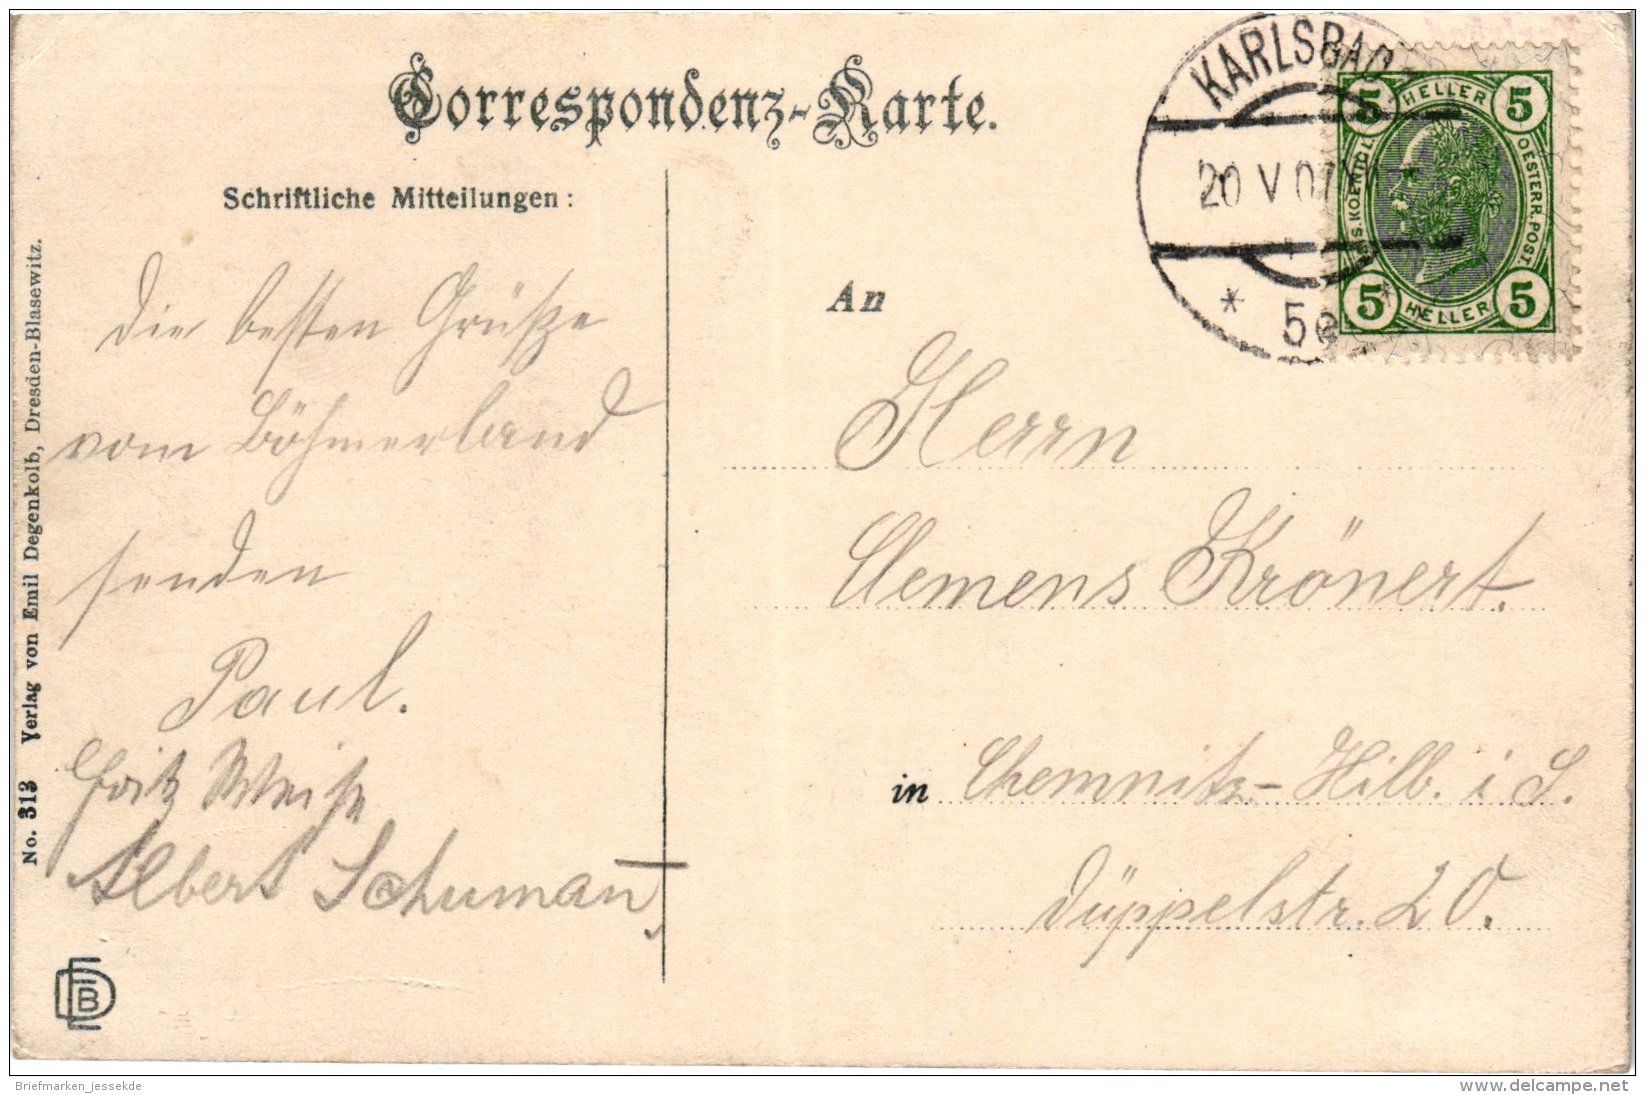 Correspondenz-Karte.
Schriftliche Mitteilungen:
Die besten Grüße
vom Böhmerland
senden
Paul.
Fritz Weise
Albert Schuman̅
An
Herrn
Clemens Krönert.
in Chemnitz-Hilb. i S.
Düppelstr. 20.
KARLSBAD
20 V 07
* 5e *
5 HELLER 5
OESTERR. POST.
5 HELLER 5
No. 313 Verlag von Emil Degenkolb, Dresden-Blasewitz.
EDB
Briefmarken_jessekde
www.delcampe.net